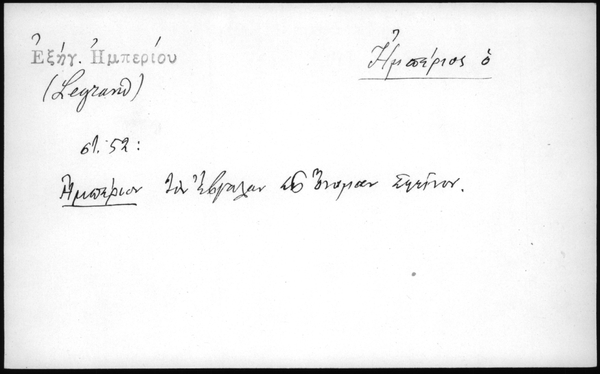 Ἐξήγ. Ἠμπερίου
Ἠμπέριος ὁ
(Legrand)
στ. 52:
Ἠμπέριον τὸν ἔβγαλαν τὸ ὄνομαν ἐκεῖνον.